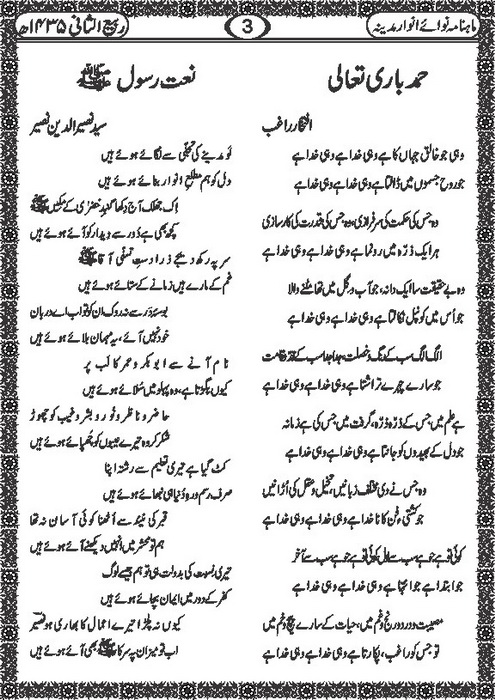 ماہنامہ نوائے انوار مدینہ
3
ربیع الثانی ۱۴۳۵ھ
حمد باری تعالی
افتخار راغب
وہی جو خالق جہاں کا ہے وہی خدا ہے وہی خدا ہے
جو روح جسموں میں ڈالتا ہے وہی خدا ہے وہی خدا ہے
وہ جس کی حکمت کی سرفرازی، وہ جس کی قدرت کی کارسازی
ہر ایک ذرّہ میں رونما ہے وہی خدا ہے وہی خدا ہے
وہ بے حقیقت سا ایک دانہ، جو آب و گل میں تھا مٹنے والا
جو اُس میں کونپل نکالتا ہے وہی خدا ہے وہی خدا ہے
الگ الگ سب کے رنگ و خصلت، جدا جدا سب کے قد و قامت
جو سارے چہرے تراشتا ہے وہی خدا ہے وہی خدا ہے
ہے علم میں جس کے ذرّہ ذرّہ، گرفت میں جس کی ہے زمانہ
جو دل کے بھیدوں کو جانتا ہے وہی خدا ہے وہی خدا ہے
وہ جس نے دی مختلف زبانیں، تخیل و عقل کی اُڑانیں
جو کشتی فن کا ناخدا ہے وہی خدا ہے وہی خدا ہے
کوئی تو ہے جو ہے سب سے اول کوئی تو ہے جو ہے سب سے آخر
جو ابتدا ہے جو انتہا ہے وہی خدا ہے وہی خدا ہے
مصیبت و درد و رنج و غم میں، حیات کے سارے پیچ و خم میں
تو جس کو راغب، پکارتا ہے وہی خدا ہے وہی خدا ہے
نعت رسول ﷺ
سید نصیر الدین نصیر
لَو مدینے کی تجلّی سے لگائے ہوئے ہیں
دل کو ہم مطلعِ انوار بنائے ہوئے ہیں
اِک جھلک آج دکھا گنبدِ خضریٰ کے مکیں ﷺ
کچھ بھی ہے دُور سے دیدار کو آئے ہوئے ہیں
سر پہ رکھ دیجے ذرا دستِ تسلّی آقا ﷺ
غم کے مارے ہیں زمانے کے ستائے ہوئے ہیں
بوسۂ در سے نہ روک ان کو تو اب اے دربان
خود نہیں آئے، یہ مہمان بلائے ہوئے ہیں
نام آنے سے ابوبکر و عمر کا لب پر
کیوں بگڑتا ہے، وہ پہلو میں سُلائے ہوئے ہیں
حاضر و ناظر و نُور و بشر و غیب کو چھوڑ
شکر کر وہ تیرے عیبوں کو چُھپائے ہوئے ہیں
کٹ گیا ہے تیری تعلیم سے رشتہ اپنا
صرف رسم و رہِ دُنیا ہی نبھائے ہوئے ہیں
قبر کی نیند سے اُٹھنا کوئی آسان نہ تھا
ہم تو محشر میں اُنہیں دیکھنے آئے ہوئے ہیں
تیری نسبت کی بدولت ہی تو ہم جیسے لوگ
کفر کے دور میں ایمان بچائے ہوئے ہیں
کیوں نہ پلڑا تیرے اعمال کا بھاری ہو نصیر
اب تو میزان پہ سرکار ﷺ بھی آئے ہوئے ہیں